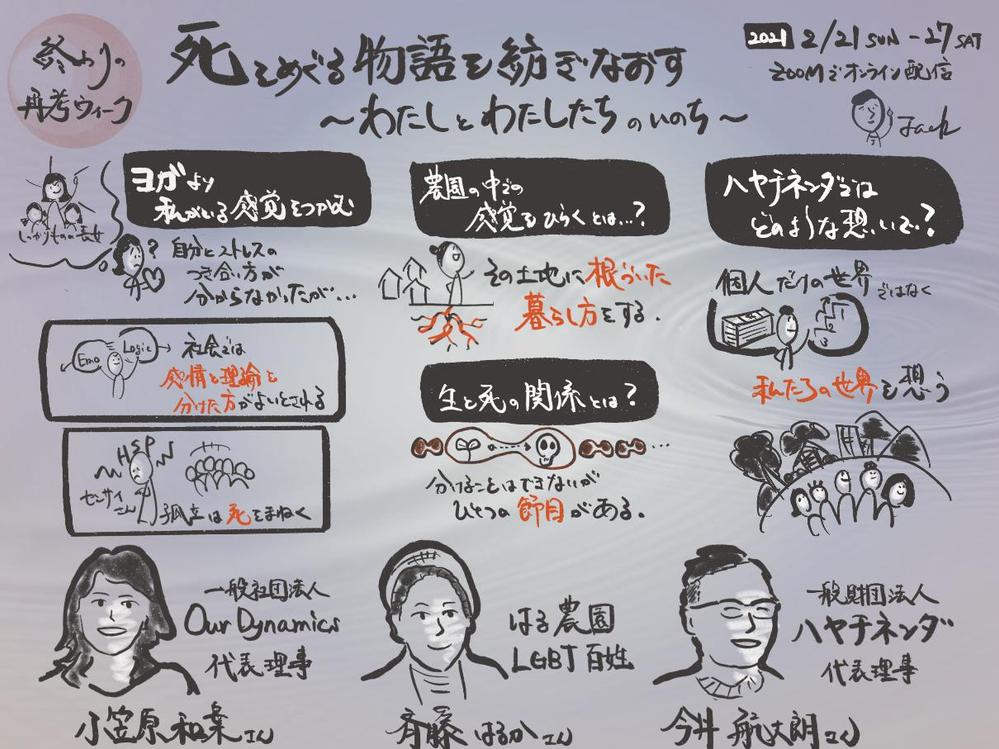 終わりの
再考ウィーク
死をめぐる物語を紡ぎなおす
～わたしとわたしたちのいのち～
2021 2/21 SUN - 27 SAT
ZOOMでオンライン配信
Jack
ヨガより
私がいる感覚をつかむ
しっかりものの長女
?
自分とストレスの
つき合い方が
分からなかったが…
Emo
Logic
社会では
感情と理論を
分けた方がよいとされる
HSP
センサイ
さん
孤立は死をまねく
農園の中での
感覚をひらくとは…?
その土地に根づいた
暮らし方をする.
生と死の関係とは?
分けることはできないが
ひとつの節目がある.
ハヤチネンダでは
どのような想いで?
個人だけの世界
ではなく
私たちの世界を想う
一般社団法人
Our Dynamics
代表理事
小笠原和葉さん
はる農園
LGBT百姓
斉藤はるかさん
一般財団法人
ハヤチネンダ
代表理事
今井航大朗さん